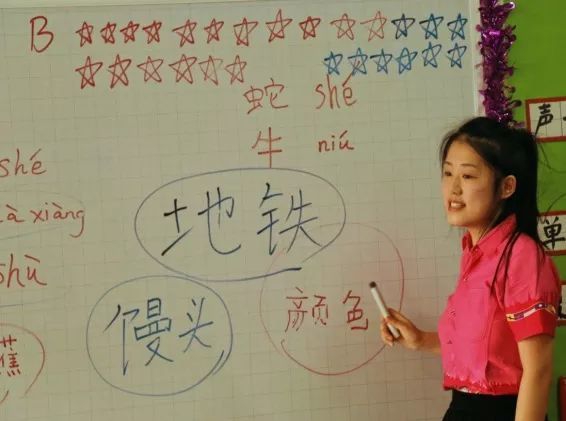 B
蛇 shé
牛 niú
shé
à xiàng
shù
地铁
馒头
颜色
蕉
声
单